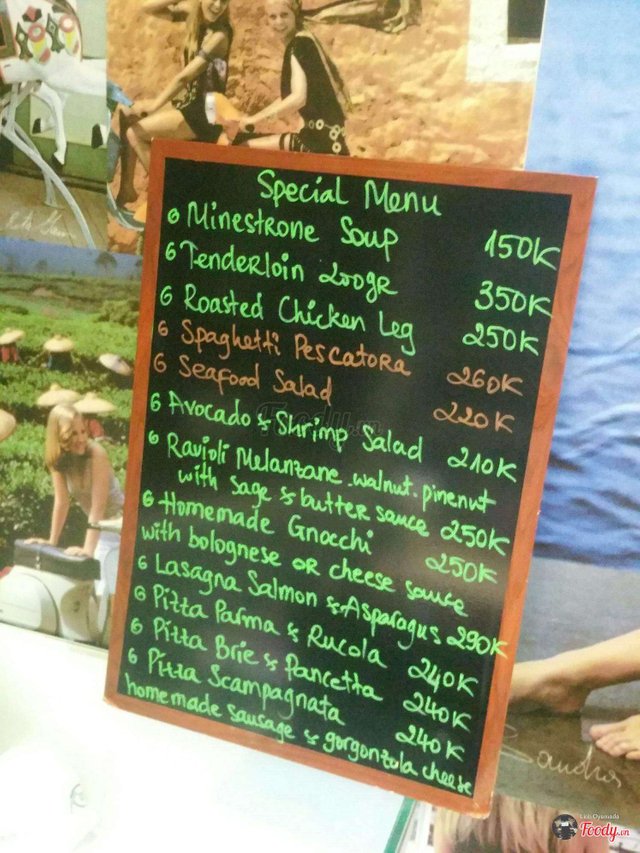 Special Menu
6 Minestrone Soup 150K
6 Tenderloin 200gr 350K
6 Roasted Chicken Leg 250K
6 Spaghetti Pescatora 260K
6 Seafood Salad 220K
6 Avocado & Shrimp Salad 210K
6 Ravioli Melanzane walnut. pinenut
with sage & butter sauce 250K
6 Homemade Gnocchi 250K
with bolognese OR cheese sauce
6 Lasagna Salmon & Asparagus 290K
6 Pizza Parma & Rucola 240K
6 Pizza Brie & Pancetta 240K
6 Pizza Scampagnata 240K
homemade sausage & gorgonzola cheese
Foody.vn
Sandra
Linh Oyamada
Foody.vn